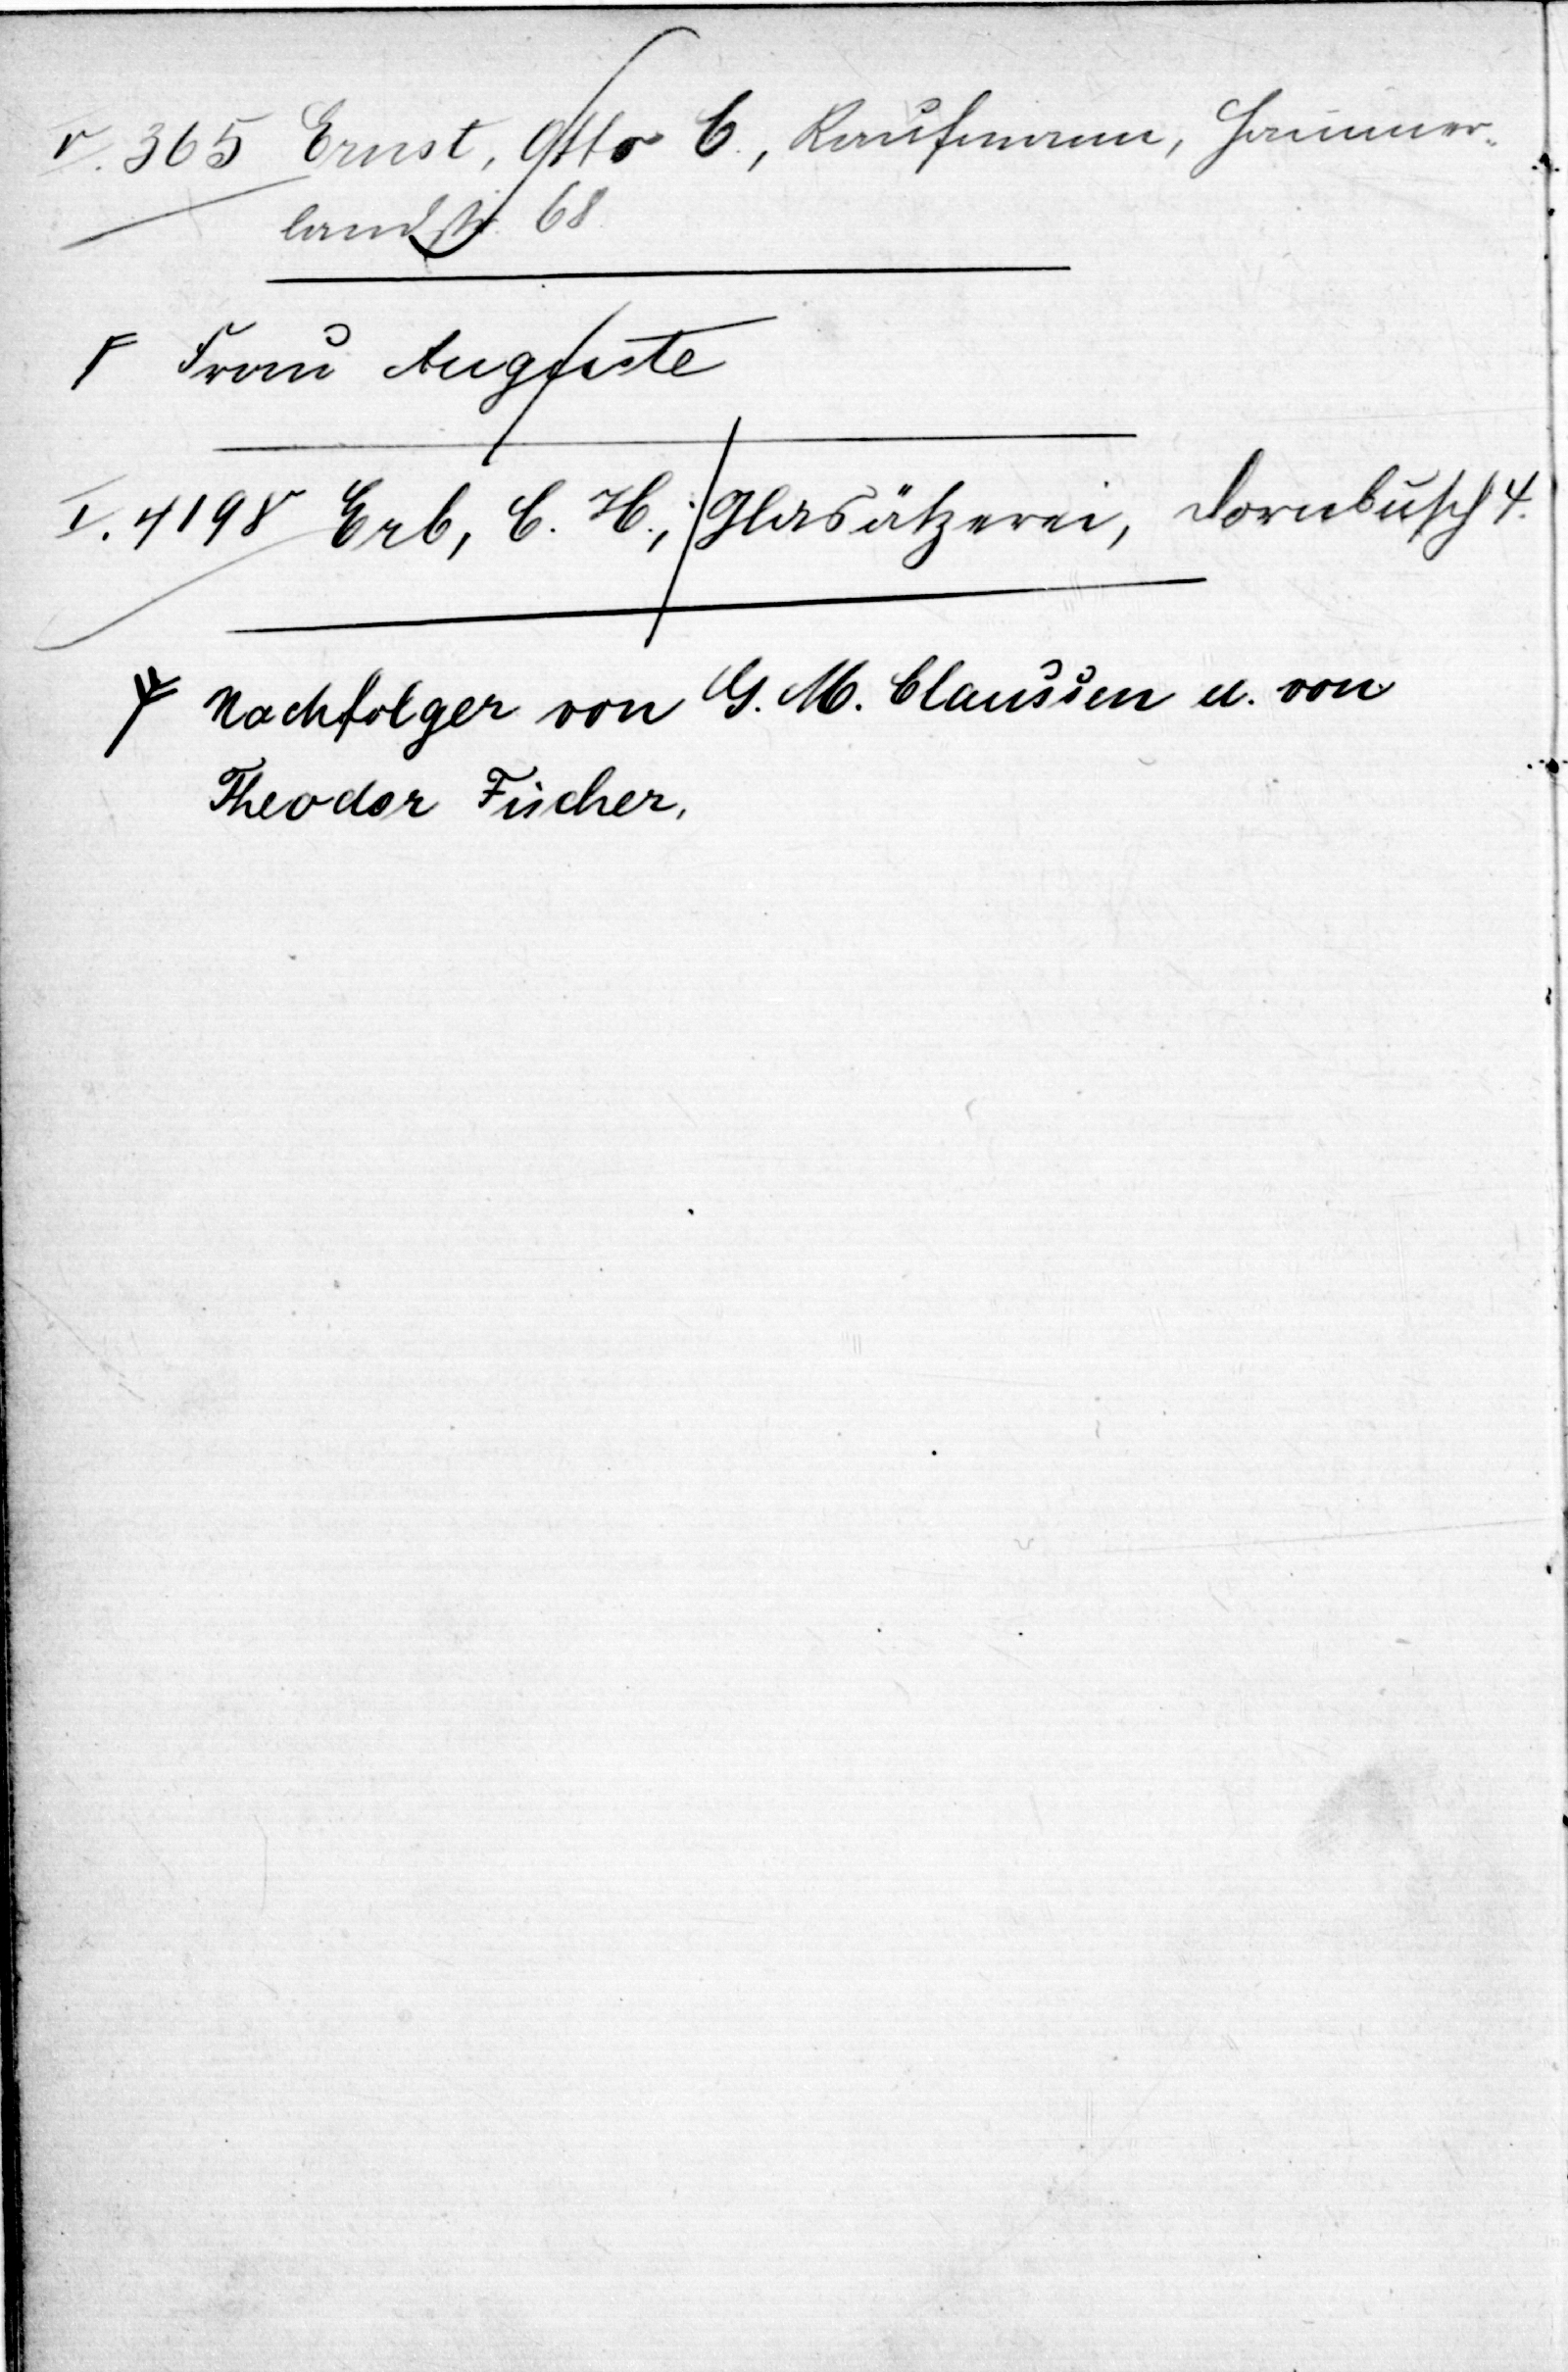 V. 365 Ernst, Otto C., Kaufmann, Hammer-
landstr. 68
Frau Auguste
I. 4198 Erb, C. H., Glasätzerei, Dornbusch 4.
Nachfolger von G. M. Claussen u. von
Theodor Fischer.